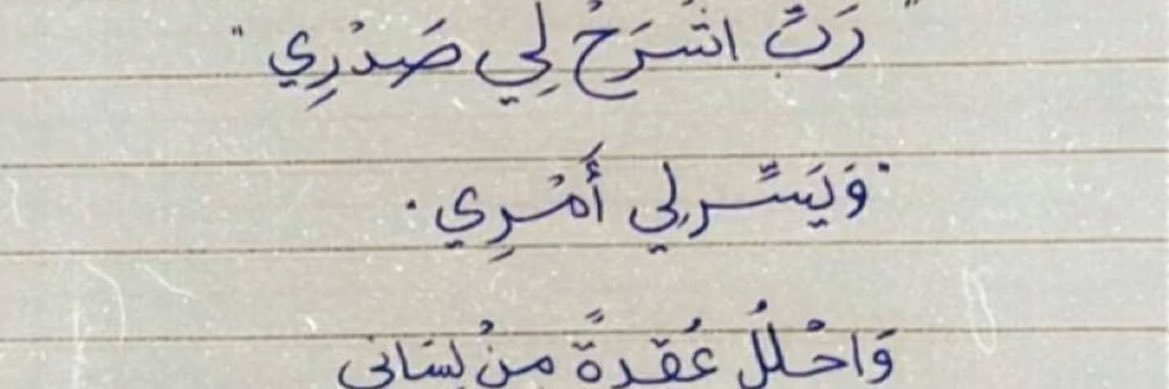 " رَبِّ اشْرَحْ لِي صَدْرِي "
" وَيَسِّر لِي أَمْرِي .
وَاحْلُلْ عُقْدَةً مِنْ لِسَانِي